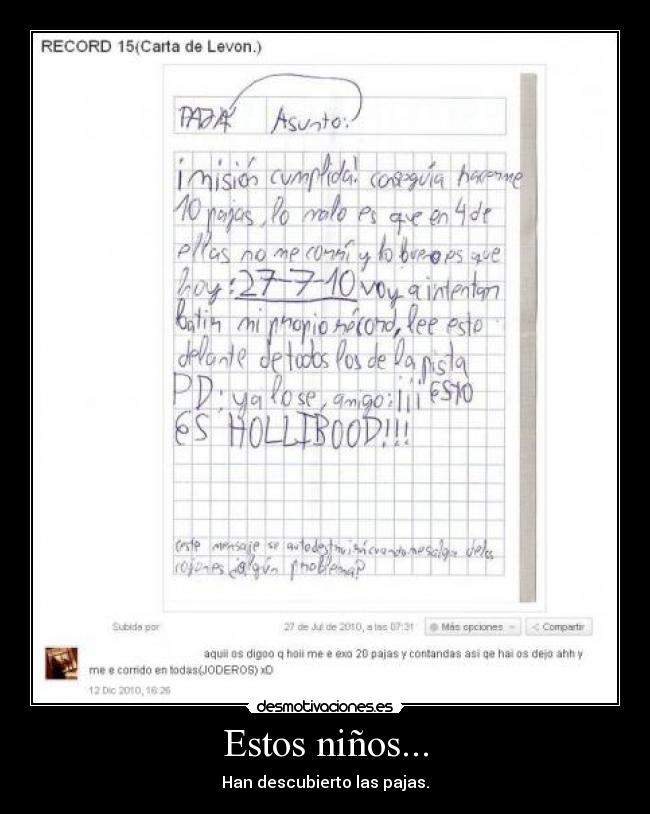 RECORD 15(Carta de Levon.)
PAJA Asunto:
¡misión cumplida! conseguía hacerme
10 pajas, lo malo es que en 4 de
ellas no me corrí y lo bueno es que
hoy: 27-7-10 voy a intentar
batir mi propio récord, lee esto
delante de todos los de la pista
PD: ya lo se, amigo: ¡¡¡ESTO
ES HOLLIBOOD!!!
(este mensaje se autodestruirá cuando me salga de los
cojones ¿algún problema?
Subida por 27 de Jul de 2010, a las 07:31 Más opciones Compartir
aquii os digoo q hoii me e exo 20 pajas y contandas asi qe hai os dejo ahh y
me e corrido en todas(JODEROS) xD
12 Dic 2010, 16:26
desmotivaciones.es
Estos niños...
Han descubierto las pajas.